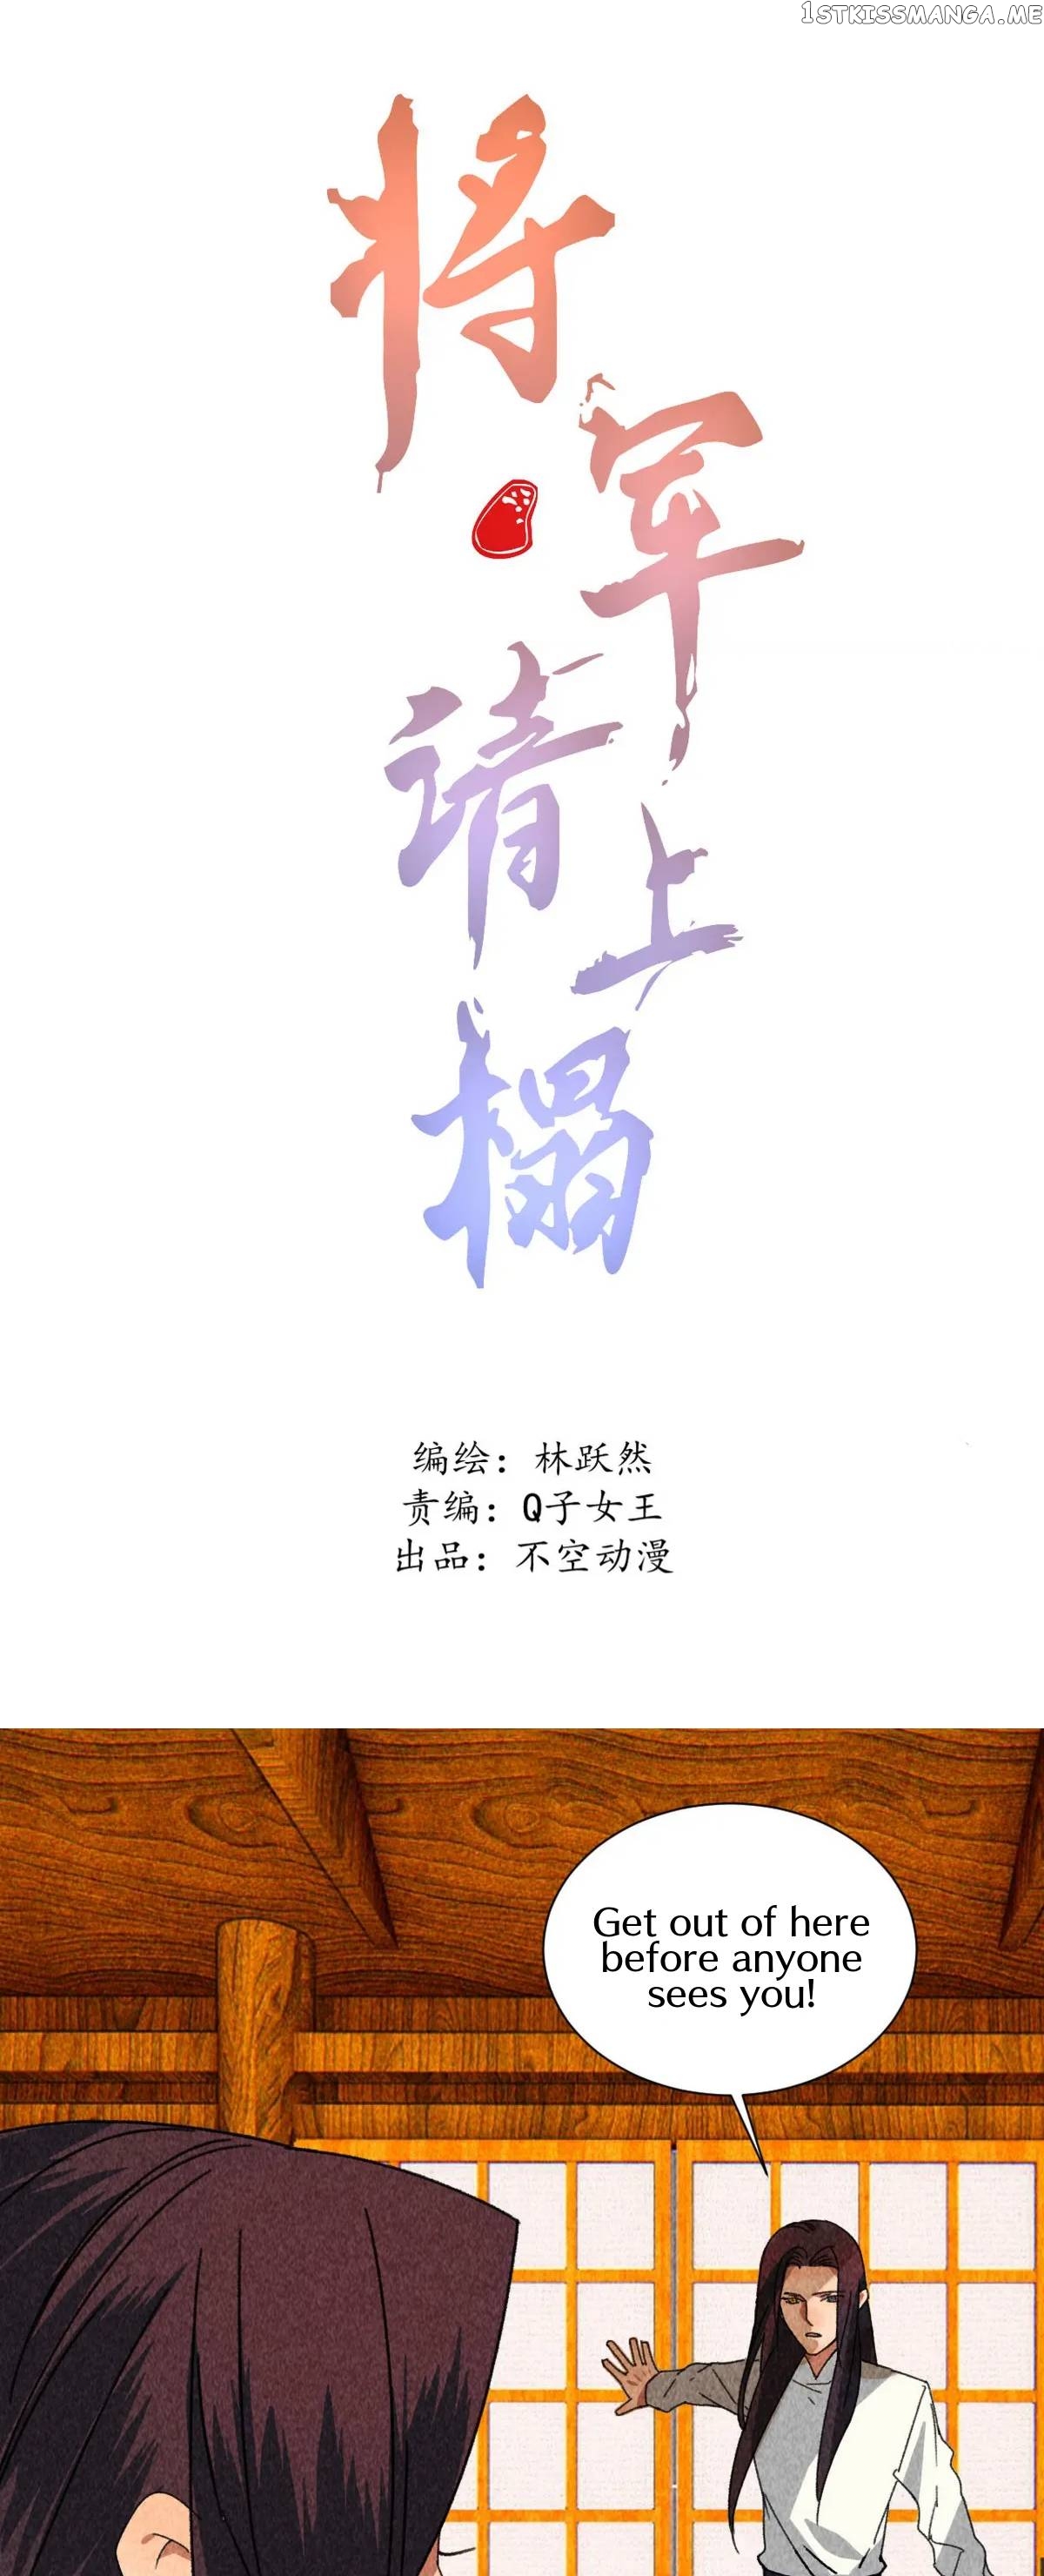 1STKISSMANGA.ME
将军请上榻
编绘：林跃然
责编：Q子女王
出品：不空动漫
Get out of here
before anyone
sees you!